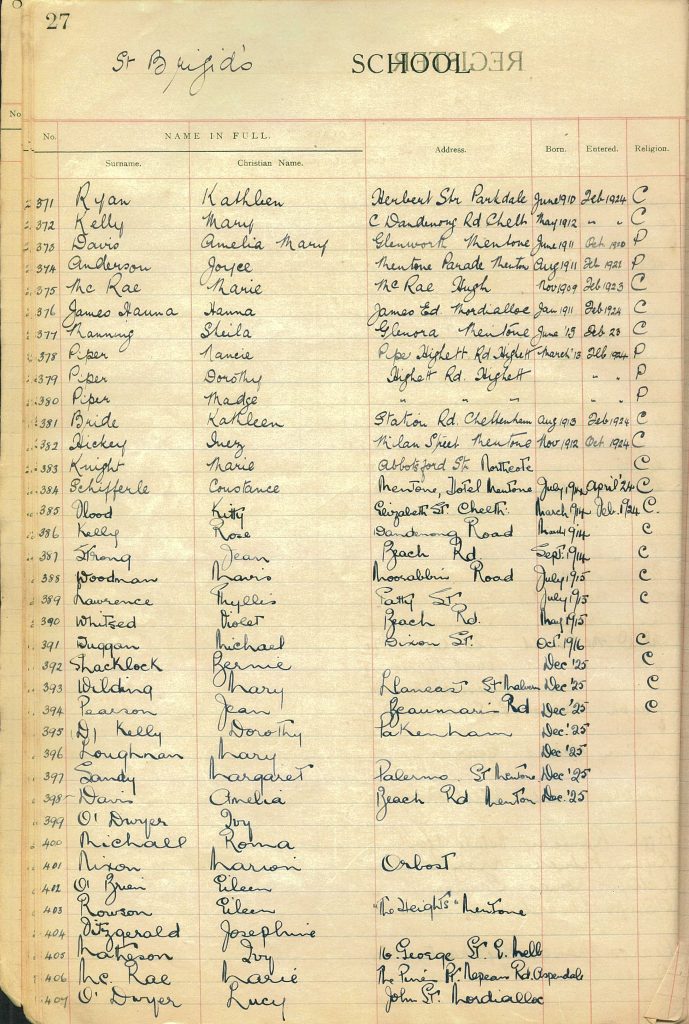 27
St Brigid's SCHOOL REGISTER
No. NAME IN FULL. Address. Born. Entered. Religion.
Surname. Christian Name.
371 Ryan Kathleen Herbert Str Parkdale June 1910 Feb 1924 C
372 Kelly Mary C Dandenong Rd Chelt May 1912 " " C
373 Davis Amelia Mary Glenworth Mentone June 1911 Oct 1920 P
374 Anderson Joyce Mentone Parade Mentone Aug 1911 Feb 1921 P
375 Mc Rae Marie Mc Rae Hugh Nov 1909 Feb 1923 C
376 James Hanna Hanna James Ed. Mordialloc Jan 1911 Feb 1924 C
377 Manning Sheila Glenora Mentone June '13 Feb 23 C
378 Piper Nancie Pipe Highett Rd. Highett March '13 Feb 1924 P
379 Piper Dorothy Highett Rd. Highett " " P
380 Piper Madge " " " " " P
381 Bride Kathleen Station Rd. Cheltenham Aug 1913 Feb 1924 C
382 Hickey Inez Milan Street Mentone Nov 1912 Oct 1924 C
383 Knight Marie Abbotsford St. Northcote C
384 Schifferle Constance Mentone, Hotel Mentone July 1914 April '24 C
385 Flood Kitty Elizabeth St Chelt. March 1914 Feb. 1924 C.
386 Kelly Rose Dandenong Road 1914 C
387 Strong Jean Beach Rd. Sept. 1914 C
388 Woodman Mavis Moorabbin Road July 1915 C
389 Lawrence Phyllis Patty St July 1915 C
390 Whitsed Violet Beach Rd. May 1915
391 Duggan Michael Dixon St. Oct 1916 C
392 Shacklock Bernie Dec '25 C
393 Wilding Mary Llaneast St Malvern Dec '25 C
394 Pearson Jean Beaumaris Rd Dec '25 C
395 Kelly Dorothy Pakenham Dec '25
396 Loughnan Mary Dec '25
397 Sandy Margaret Palermo St Mentone Dec '25
398 Davis Amelia Beach Rd Menton Dec '25
399 O' Dwyer Ivy
400 Michall Roma
401 Nixon Marion Orbost
402 O' Brien Eileen
403 Rowson Eileen "The Heights" Mentone
404 Fitzgerald Josephine
405 Matheson Ivy 16 George St. E. Melb
406 Mc. Rae Marie The Pines Pt. Nepean Rd. Aspendale
407 O' Dwyer Lucy John St. Mordialloc